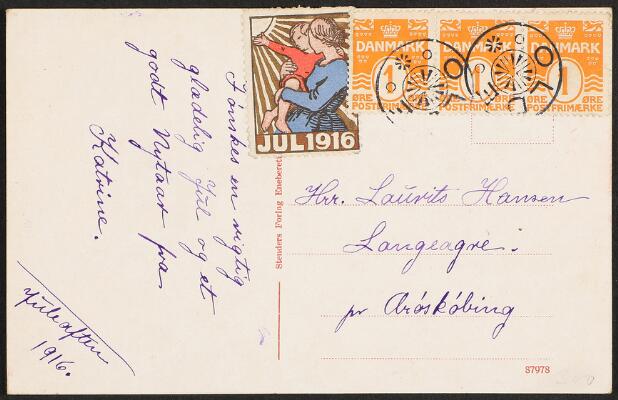 I ønskes en rigtig
glædelig Jul og et
godt Nytaar fra
Katrine.
Juleaften
1916.
JUL 1916
DANMARK
1
ØRE
POSTFRIMÆRKE
DANMARK
ØRE
POSTFRIMÆRKE
DANMARK
1
ØRE
POSTFRIMÆRKE
Stenders Forlag Eneberet
Hrr. Laurits Hansen
Langeagre.
pr Aröskóbing
87978